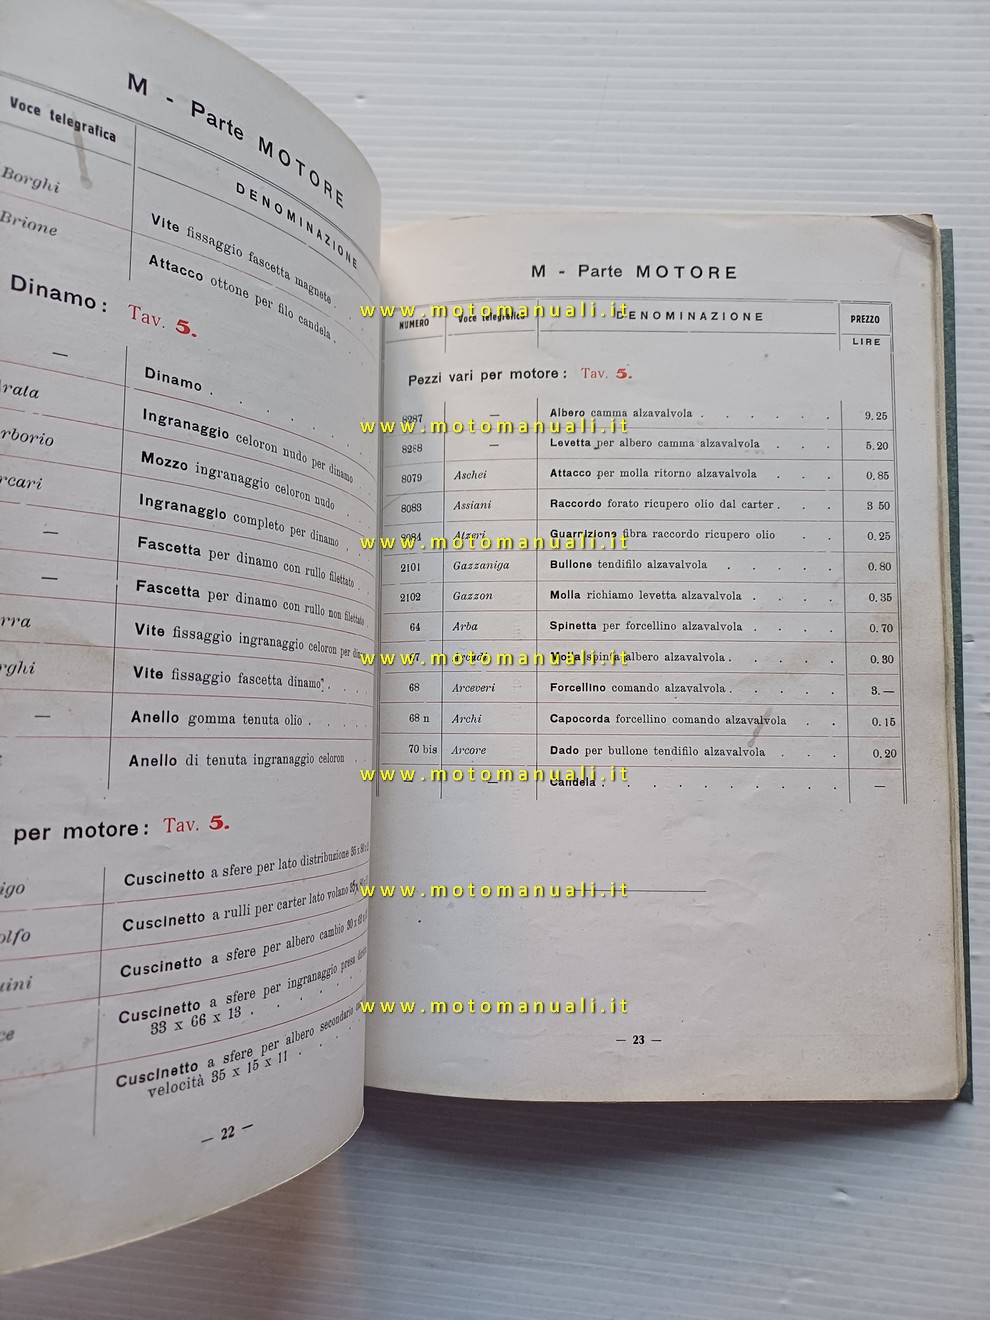 M - Parte MOTORE
Voce telegrafica
DENOMINAZIONE
Borghi
Vite fissaggio fascetta magnete .
Brione
Attacco ottone per filo candela .
Dinamo: Tav. 5.
— Dinamo . . . . .
rata Ingranaggio celoron nudo per dinamo
rborio Mozzo ingranaggio celoron nudo . .
rcari Ingranaggio completo per dinamo . .
— Fascetta per dinamo con rullo filettato .
— Fascetta per dinamo con rullo non filettato .
rra Vite fissaggio ingranaggio celoron per
rghi Vite fissaggio fascetta dinamo . . . .
— Anello gomma tenuta olio . . . . .
Anello di tenuta ingranaggio celoron . .
per motore: Tav. 5.
igo Cuscinetto a sfere per lato distribuzione
olfo Cuscinetto a rulli per carter lato volano
uini Cuscinetto a sfere per albero cambio
ce Cuscinetto a sfere per ingranaggio presa
33 x 66 x 13 . . . . .
Cuscinetto a sfere per albero secondario
velocità 35 x 15 x 11 . . . .
— 22 —
M - Parte MOTORE
NUMERO Voce telegrafica DENOMINAZIONE PREZZO
LIRE
Pezzi vari per motore: Tav. 5.
8287 — Albero camma alzavalvola . . . . . 9,25
8288 — Levetta per albero camma alzavalvola . . . 5.20
8079 Aschei Attacco per molla ritorno alzavalvola . . . 0.85
8083 Assiani Raccordo forato ricupero olio dal carter . . . 3 50
8084 Alzeri Guarnizione fibra raccordo ricupero olio . . 0.25
2101 Gazzaniga Bullone tendifilo alzavalvola . . . . . 0.80
2102 Gazzon Molla richiamo levetta alzavalvola . . . . 0.35
64 Arba Spinetta per forcellino alzavalvola . . . . 0.70
67 Arcadi Molla spinta albero alzavalvola . . . . . 0.30
68 Arceveri Forcellino comando alzavalvola . . . . . 3.—
68 n Archi Capocorda forcellino comando alzavalvola . . 0.15
70 bis Arcore Dado per bullone tendifilo alzavalvola . . . 0.20
— — Candela . . . . . . . . . . —
— 23 —
www.motomanuali.it
www.motomanuali.it
www.motomanuali.it
www.motomanuali.it
www.motomanuali.it
www.motomanuali.it
www.motomanuali.it